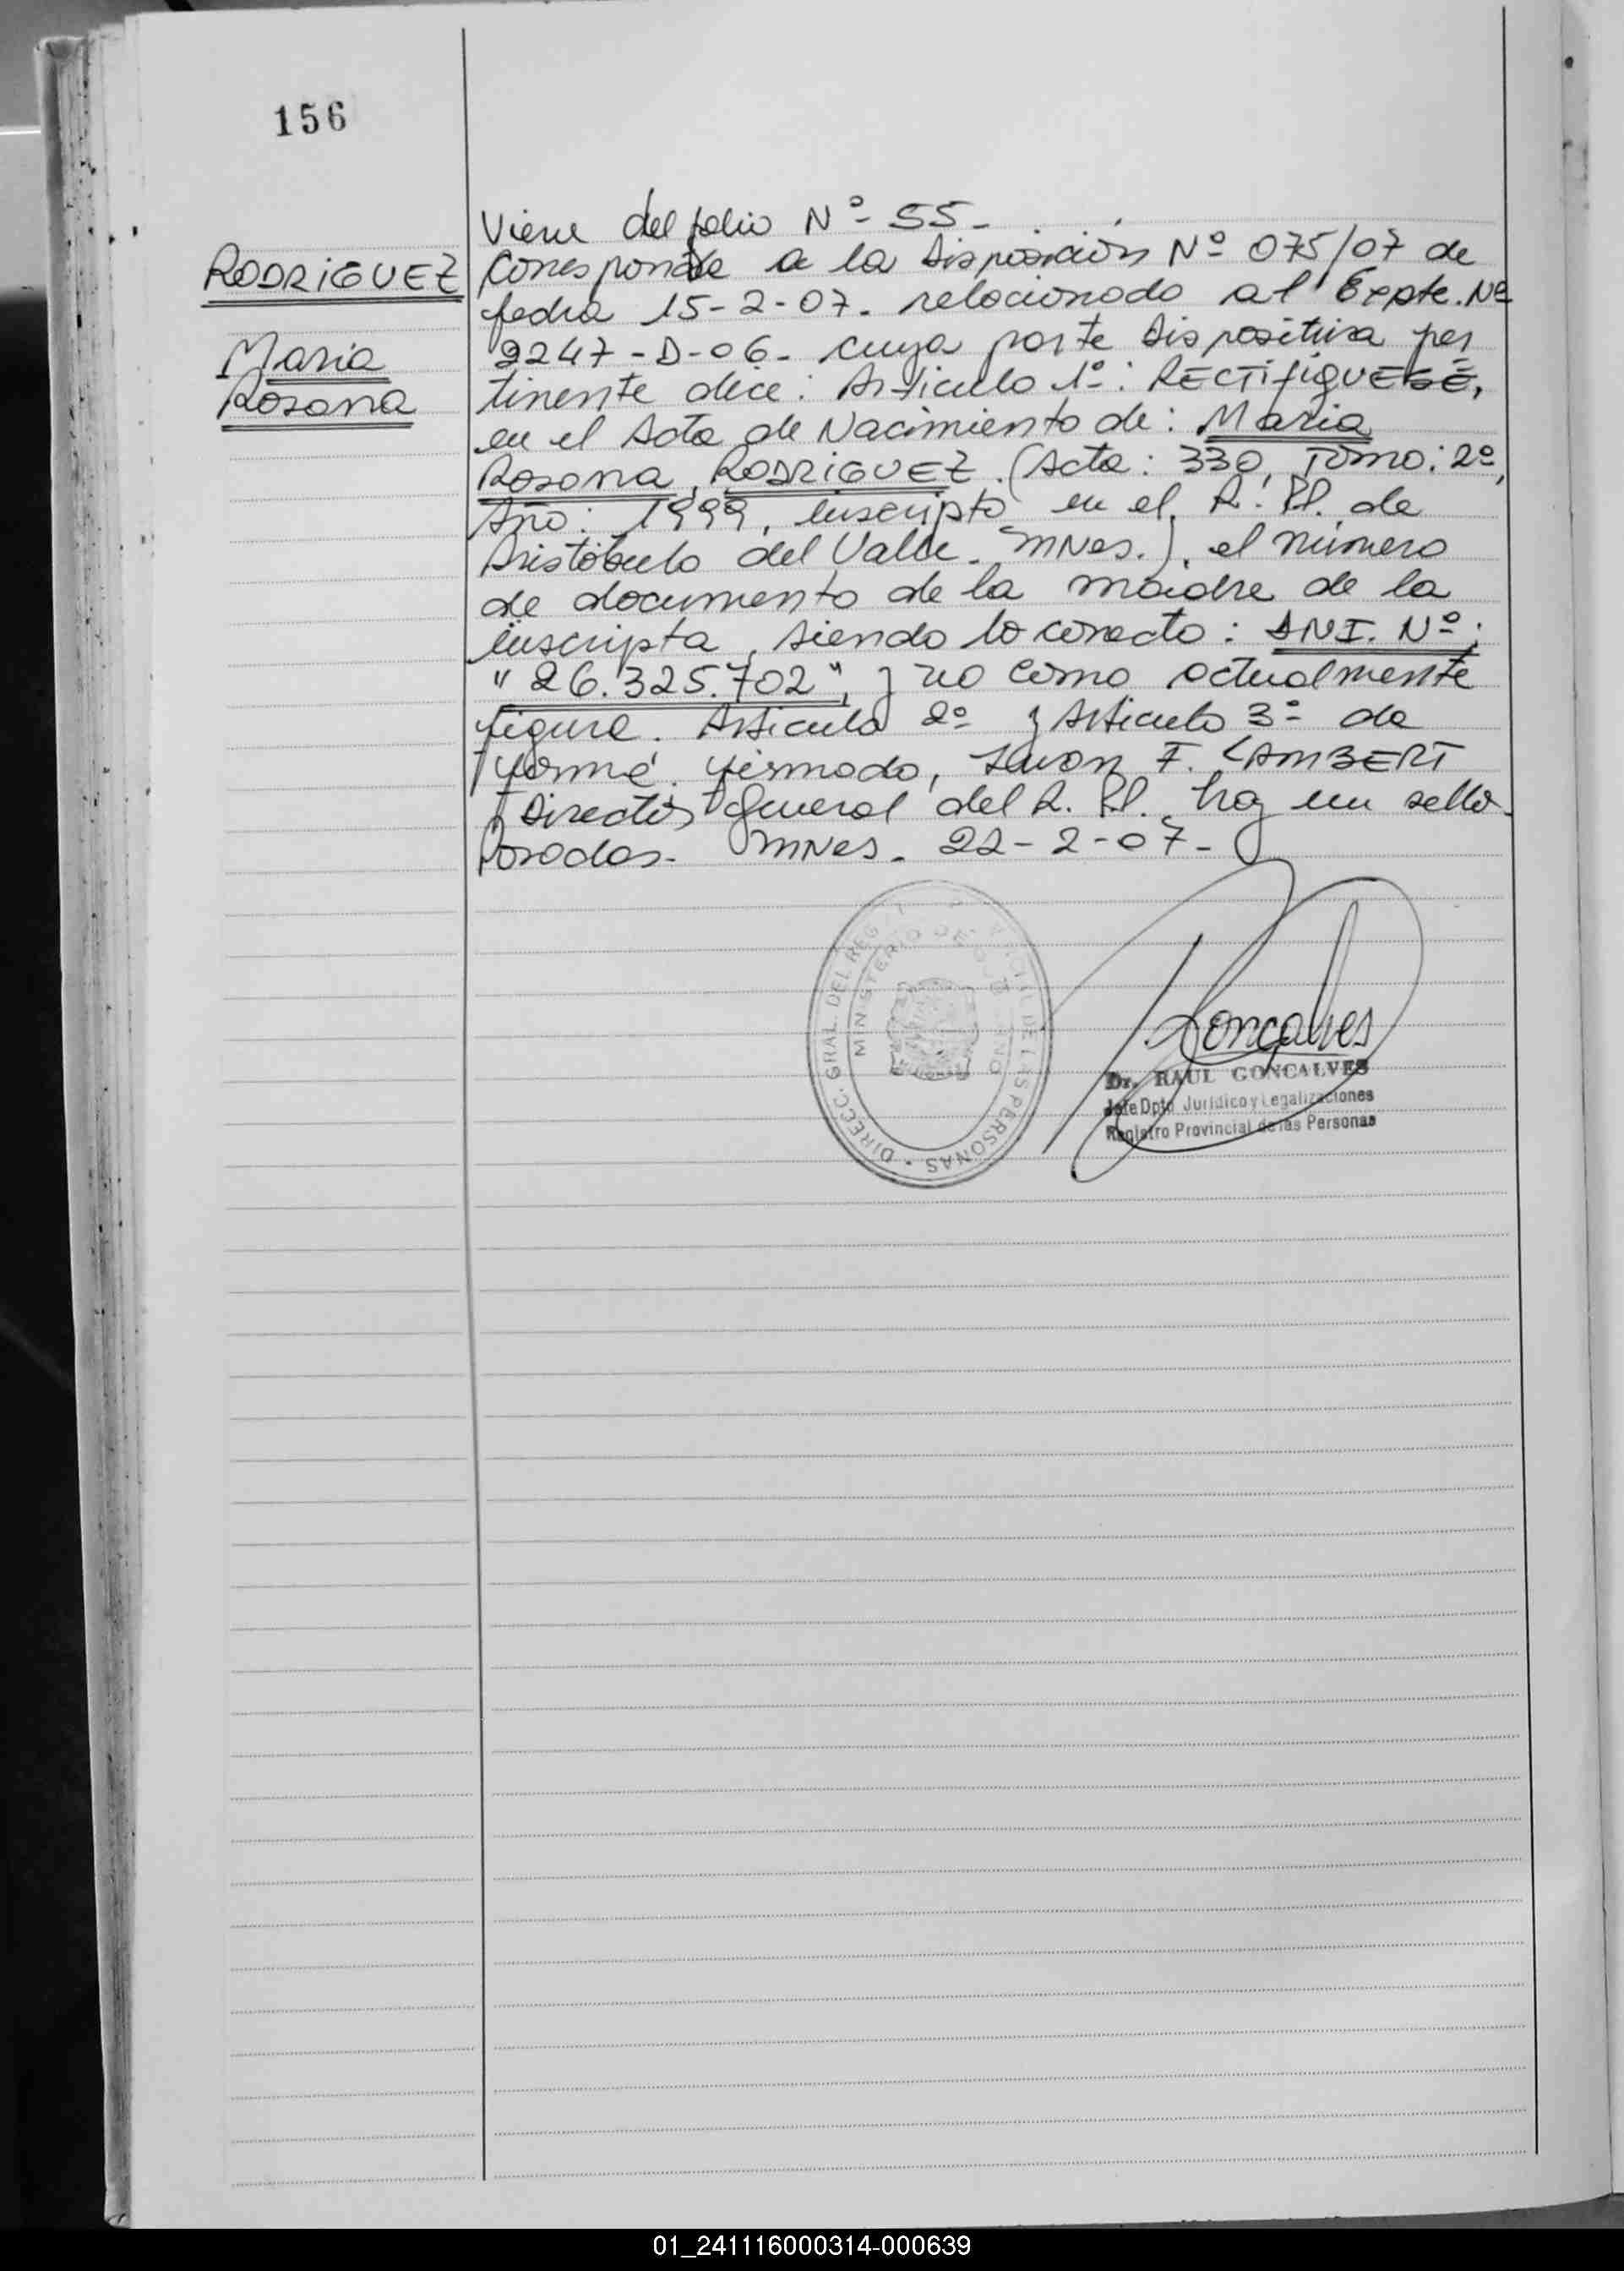 156
Viene del folio Nº 55-
RODRIGUEZ
Corresponde a la Disposición Nº 075/07 de
fecha 15-2-07. relacionado al Expte. Nº
Maria
9247-D-06- cuya parte dispositiva per
Rosana
tinente dice: Articulo 1º: RECTIFIQUESE,
en el Acta de Nacimiento de: Maria
Rosana RODRIGUEZ. (Acta: 330, Tomo: 2º,
Año: 1999, inscripto en el R. P. de
Aristóbulo del Valle. Mnes.). el número
de documento de la madre de la
inscripta, siendo lo correcto: DNI. Nº:
"26.325.702", y no como actualmente
figura. Articulo 2º y Articulo 3º de
forma. firmado, Juan F. LAMBERT
Director General del R. P. hay un sello.
Posadas- Mnes. 22-2-07-
DIRECC. GRAL. DEL REG. PROVINCIAL DE LAS PERSONAS
MINISTERIO DE GOBIERNO
Goncalves
Dr. RAUL GONCALVES
Jefe Dpto Jurídico y Legalizaciones
Registro Provincial de las Personas
01_241116000314-000639